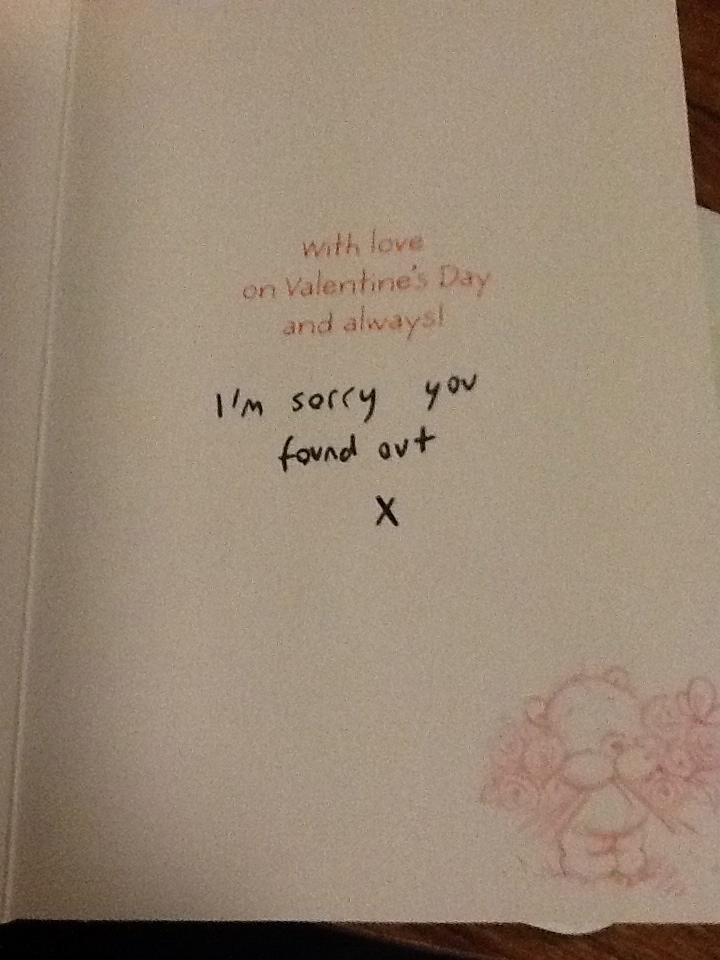 with love
on Valentine's Day
and always!
I'm sorry you
found out
X